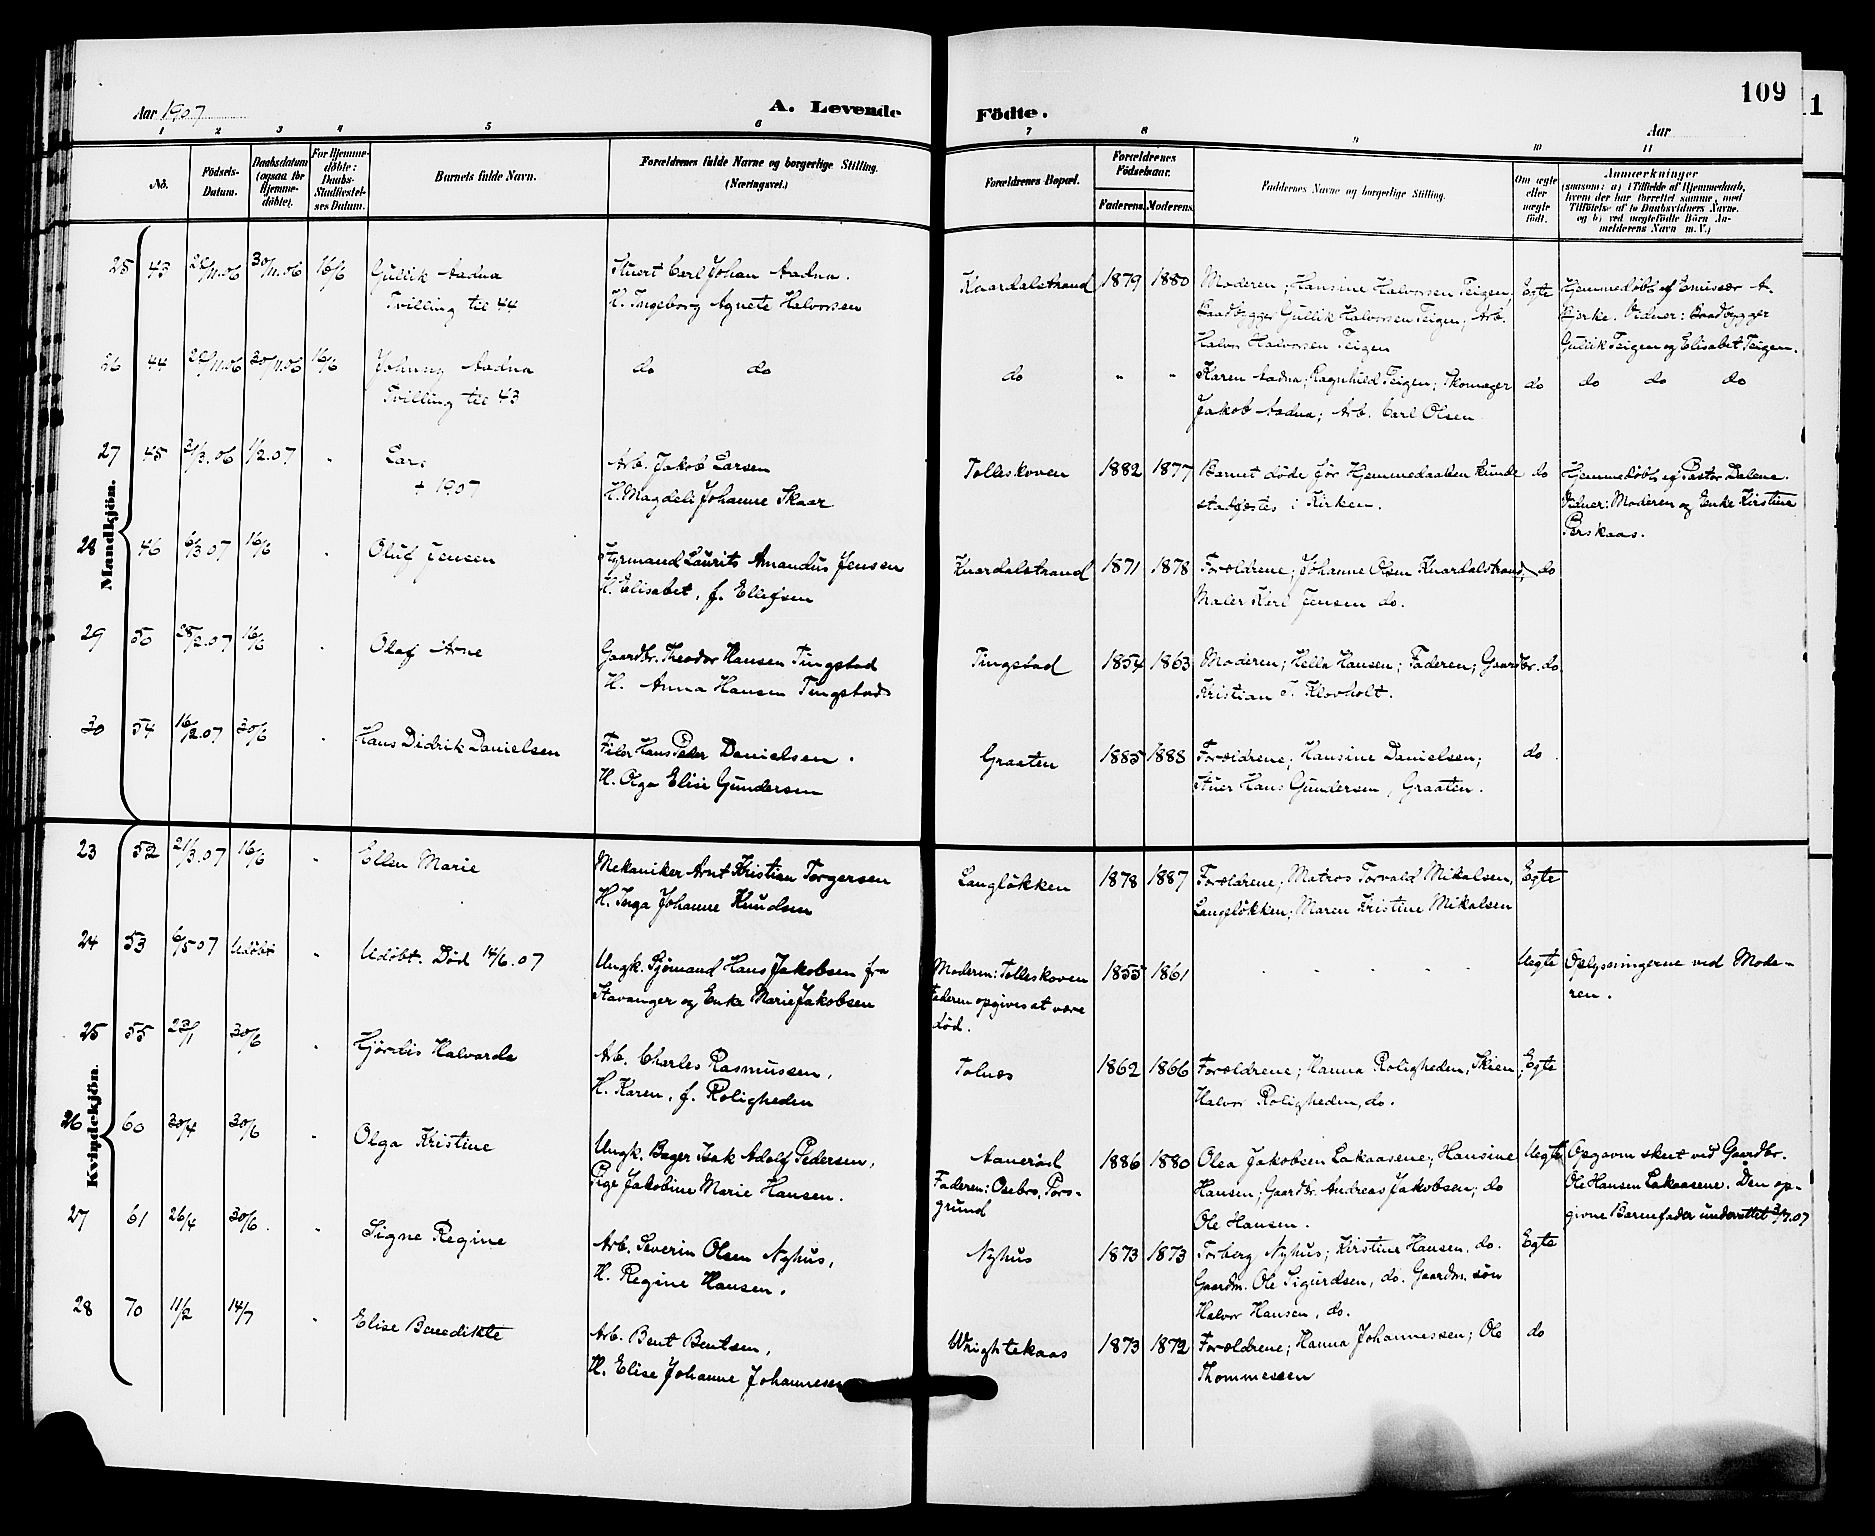 109
Aar 1907
A. Levende Födte.
Aar
1 2 3 4 5 6 7 8 9 10 11
No.
Födsels-Datum.
Daabsdatum (ogsaa for Hjemme-døbte).
For Hjemme-døbte: Daabs-Stadfæstel-ses Datum.
Barnets fulde Navn.
Forældrenes fulde Navne og borgerlige Stilling. (Næringsvei.)
Forældrenes Bopæl.
Forældrenes Födselsaar.
Faderens. Moderens.
Faddernes Navne og borgerlige Stilling.
Om ægte eller uægte født.
Anmærkninger
(saasom: a) i Tilfælde af Hjemmedaab, hvem der har forrettet samme, med Tilföielse af to Daabsvidners Navne, og b) ved uægtefödte Börn An-melderens Navn m. V.)
Mandkjön.
25 43 30/11.06 16/6 Gullik Aadna Stuert Carl Johan Aadna. Knardalstrand 1879 1880 Moderen; Hansine Halvorsen Teigen; Egte Hjemmedøbt af Emissær A.
Tvilling til 44 H. Ingeborg Agnete Halvorsen Baadbygger Gullik Halvorsen Teigen; Arb. Birke. Vidner: Baadbygger
Halvor Halvorsen Teigen Gullik Teigen og Elisabet Teigen.
26 44 30/11.06 16/6 Johnny Aadna do do do " " Karen Aadna; Ragnhild Teigen; Skomager do do do do
Tvilling til 43 Jakob Aadna; Arb. Carl Olsen
27 45 3/3.06 1/2.07 " Lars Arb. Jakob Larsen Tolleskoven 1882 1877 Barnet døde før Hjemmedaaben kunde do Hjemmedøbt af Pastor Dalene.
+ 1907 H. Magdeli Johanne Skaar stadfæstes i Kirken. Vidner: Moderen og Enke Kirstine
Perskaas.
28 46 6/3.07 16/6 " Oluf Jensen Styrmand Laurits Amandus Jensen Knardalstrand 1871 1878 Forældrene; Johanne Olsen Knardalstrand; do
H. Elisabet, f. Ellefsen Maler Karl Jensen do.
29 50 28/2.07 16/6 " Olaf Arne Gaardbr. Theodor Hansen Tingstad Tingstad 1854 1863 Moderen; Hella Hansen; Faderen; Gaardbr. do
H. Anna Hansen Tingstad Kristian T. Klovholt.
30 54 16/2.07 30/6 " Hans Didrik Danielsen Filer Hans Peder Danielsen. Graaten 1885 1888 Forældrene; Hansine Danielsen; do
H. Olga Elise Gundersen Stuer Hans Gundersen, Graaten.
Kvindekjön.
23 52 21/3.07 16/6 " Ellen Marie Mekaniker Arnt Kristian Torgersen Langløkken 1878 1887 Forældrene; Matros Torvald Mikalsen, Egte
H. Inga Johanne Knudsen Langeløkken; Maren Kristine Mikalsen
24 53 6/5 07 Udøbt " Udøbt. Død 14/6.07 Ungk. Sjømand Hans Jakobsen fra Moderen: Tolleskoven 1855 1861 Uegte Oplysningerne ved Mode-
Stavanger og Enke Marie Jakobsen Faderen opgives at være ren.
død.
25 55 23/1 30/6 " Hjørdis Halvarda Arb. Charles Rasmussen, Tolnes 1862 1866 Forældrene; Hanna Roligheden, Skien; Egte
H. Karen, f. Roligheden Halvor Roligheden, do.
26 60 30/4 30/6 " Olga Kristine Ungk. Bager Isak Adolf Pedersen, Aanerød 1886 1880 Olea Jakobsen Lakaasene; Hansine Uegte Opgaven skeet ved Gaardbr.
Pige Jakobine Marie Hansen. Faderen: Osebro, Pors- Hansen; Gaardbr. Andreas Jakobsen; do Ole Hansen Lakaasene. Den op-
grund Ole Hansen. givne Barnefader underrettet 3/7.07
27 61 26/4 30/6. " Signe Regine Arb. Severin Olsen Nyhus, Nyhus 1873 1873 Torberg Nyhus; Kirstine Hansen, do. Egte
H. Regine Hansen. Gaardm. Ole Sigurdsen, do. Gaardm. søn
Halvor Hansen, do.
28 70 11/2 14/7 " Elise Benedikte Arb. Bent Bentsen, Wrightekaas 1873 1872 Forældrene; Hanna Johannessen; Ole do
H. Elise Johanne Johannesen Thommesen